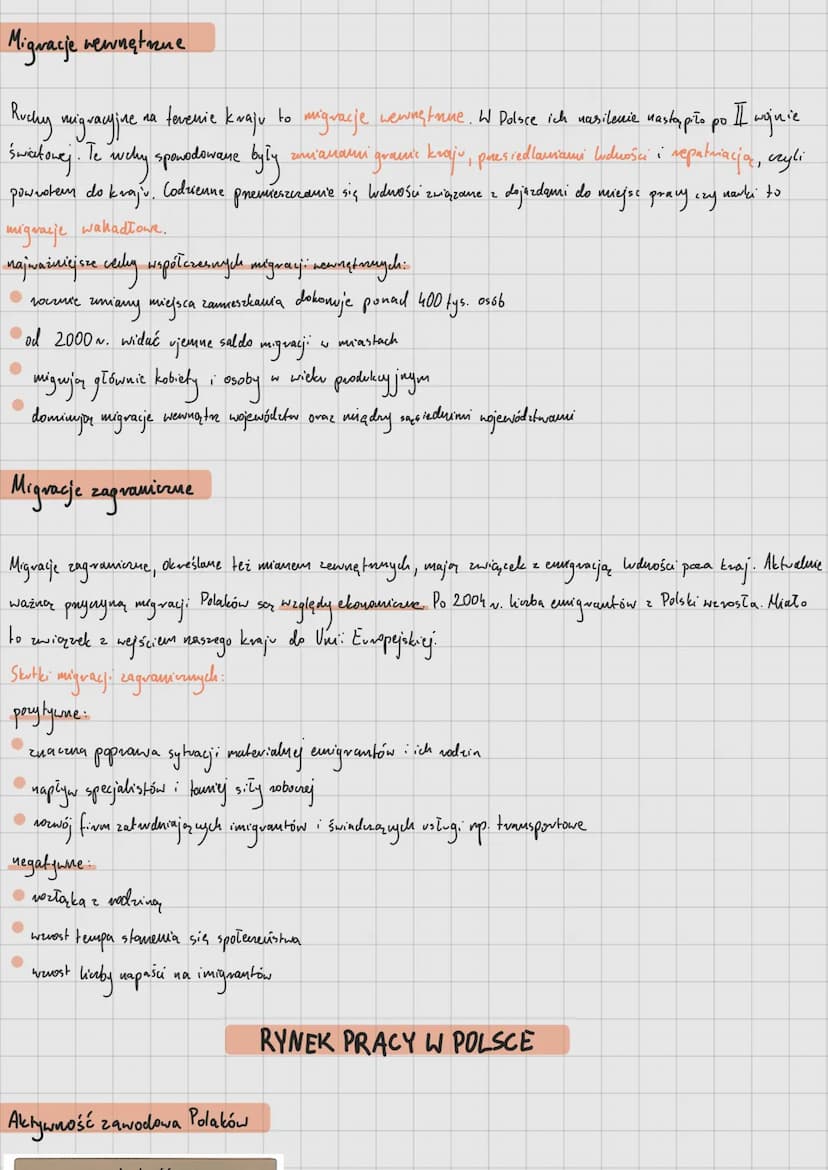 Migracje wewnętrzne
Ruchy migracyjne na terenie kraju to migracje wewnętrzne. W Polsce ich nasilenie nastąpiło po II wojnie
światowej. Te ruchy spowodowane były zmianami granic kraju, przesiedlaniami ludności i repatriacją, czyli
powrotem do kraju. Codzienne przemieszczanie się ludności związane z dojazdami do miejsc pracy czy nauki to
migracje wahadłowe.
najważniejsze cechy współczesnych migracji wewnętrznych:
rocznie zmiany miejsca zamieszkania dokonuje ponad 400 tys. osób
od 2000 r. widać ujemne saldo migracji w miastach
migrują głównie kobiety i osoby w wieku produkcyjnym
dominują migracje wewnątrz województw oraz między sąsiednimi województwami
Migracje zagraniczne
Migracje zagraniczne, określane też mianem zewnętrznych, mają związek z emigracją ludności poza kraj. Aktualnie
ważną przyczyną migracji Polaków są względy ekonomiczne. Po 2004 r. liczba emigrantów z Polski wzrosła. Miało
to związek z wejściem naszego kraju do Unii Europejskiej.
Skutki migracji zagranicznych:
pozytywne:
znaczna poprawa sytuacji materialnej emigrantów i ich rodzin
napływ specjalistów i taniej siły roboczej
rozwój firm zatrudniających imigrantów i świadczących usługi np. transportowe
negatywne:
rozłąka z rodziną
wzrost tempa starzenia się społeczeństwa
wzrost liczby napaści na imigrantów
RYNEK PRACY W POLSCE
Aktywność zawodowa Polaków